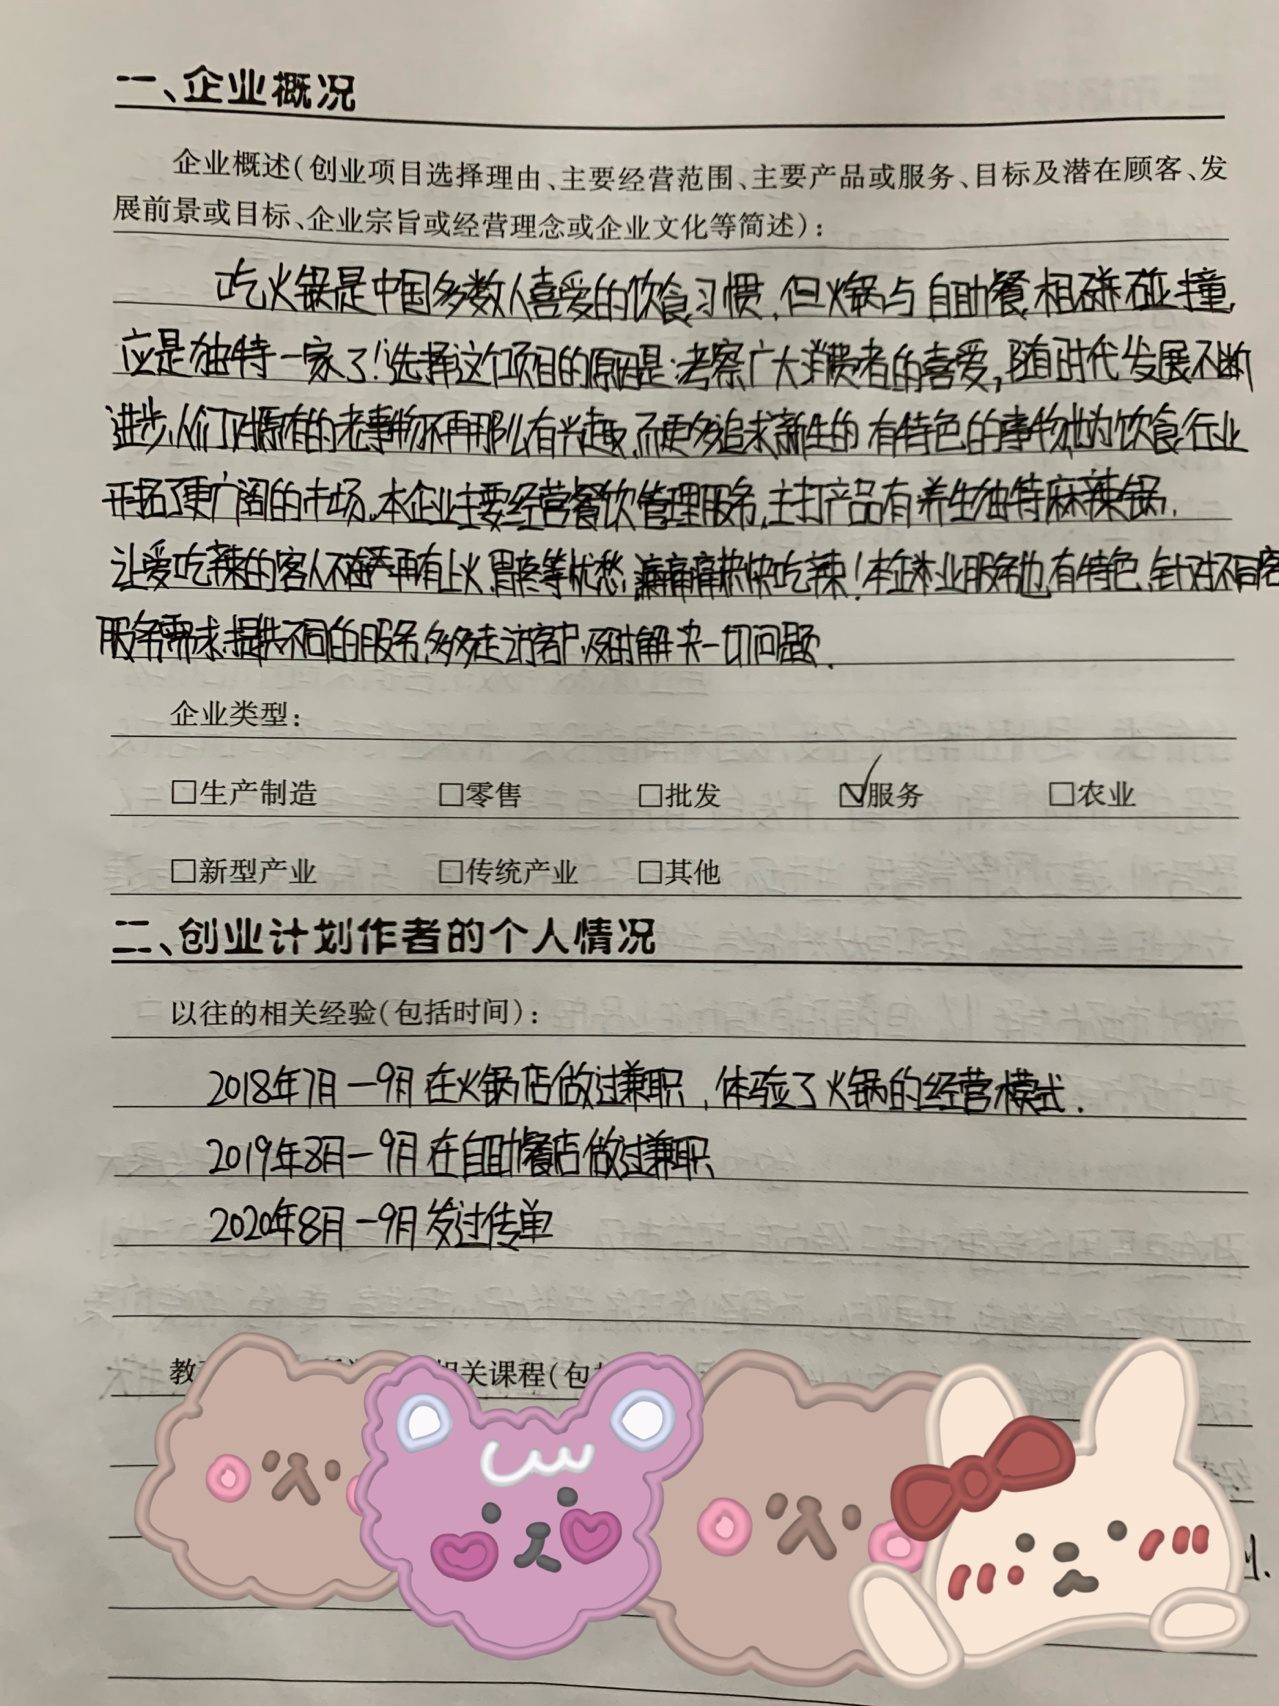 一、企业概况
企业概述(创业项目选择理由、主要经营范围、主要产品或服务、目标及潜在顾客、发
展前景或目标、企业宗旨或经营理念或企业文化等简述):
吃火锅是中国多数人喜爱的饮食习惯,但火锅与自助餐相碰撞,
应是独特一家了!选择这个项目的原因是:考察广大消费者的喜爱,随时代发展不断
进步,人们对原有的老事物不再那么有兴趣,而更多追求新生的有特色的事物,也为饮食行业
开拓了更广阔的市场。本企业主要经营餐饮管理服务,主打产品有养生独特麻辣锅,
让爱吃辣的客人不再有上火,胃疼等忧愁,痛痛快快吃辣!本企业服务也有特色,针对不同客
服务需求,提供不同的服务,多多走访客户,及时解决一切问题.
企业类型:
□生产制造 □零售 □批发 ☑服务 □农业
□新型产业 □传统产业 □其他
二、创业计划作者的个人情况
以往的相关经验(包括时间):
2018年7月—9月在火锅店做过兼职,体验了火锅的经营模式.
2019年8月—9月在自助餐店做过兼职、
2020年8月—9月发过传单
教 相关课程(包